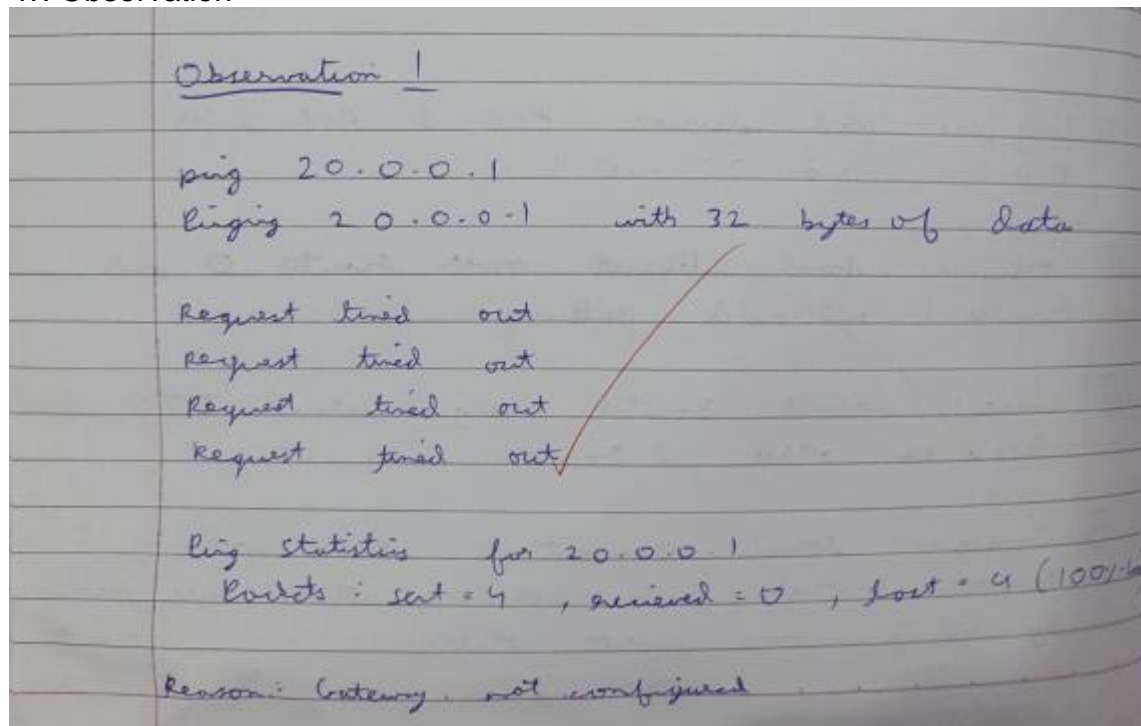 Observation 1
ping 20.0.0.1
Pinging 20.0.0.1 with 32 bytes of data
Request timed out
Request timed out
Request timed out
Request timed out
Ping statistics for 20.0.0.1
Packets : sent = 4 , recieved = 0 , lost = 4 (100%
Reason: Gateway not configured